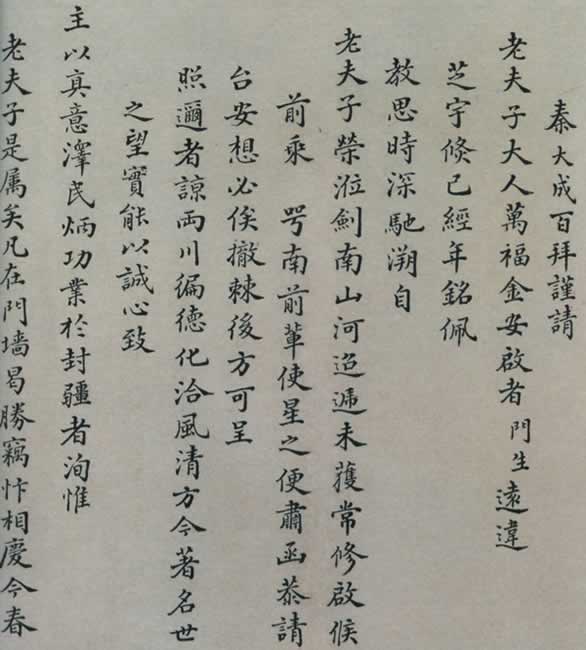 秦大成百拜謹請
老夫子大人萬福金安啟者門生遠違
芝宇倐已經年銘佩
教思時深馳溯自
老夫子榮涖劍南山河迢遞未獲常修啟候
前乘　咢南前輩使星之便肅函恭請
台安想必俟撤棘後方可呈
照邇者諒兩川徧德化洽風清方今著名世
之望實能以誠心致
主以真意澤民炳功業於封疆者洵惟
老夫子是属矣凡在門墻曷勝竊忭相慶今春